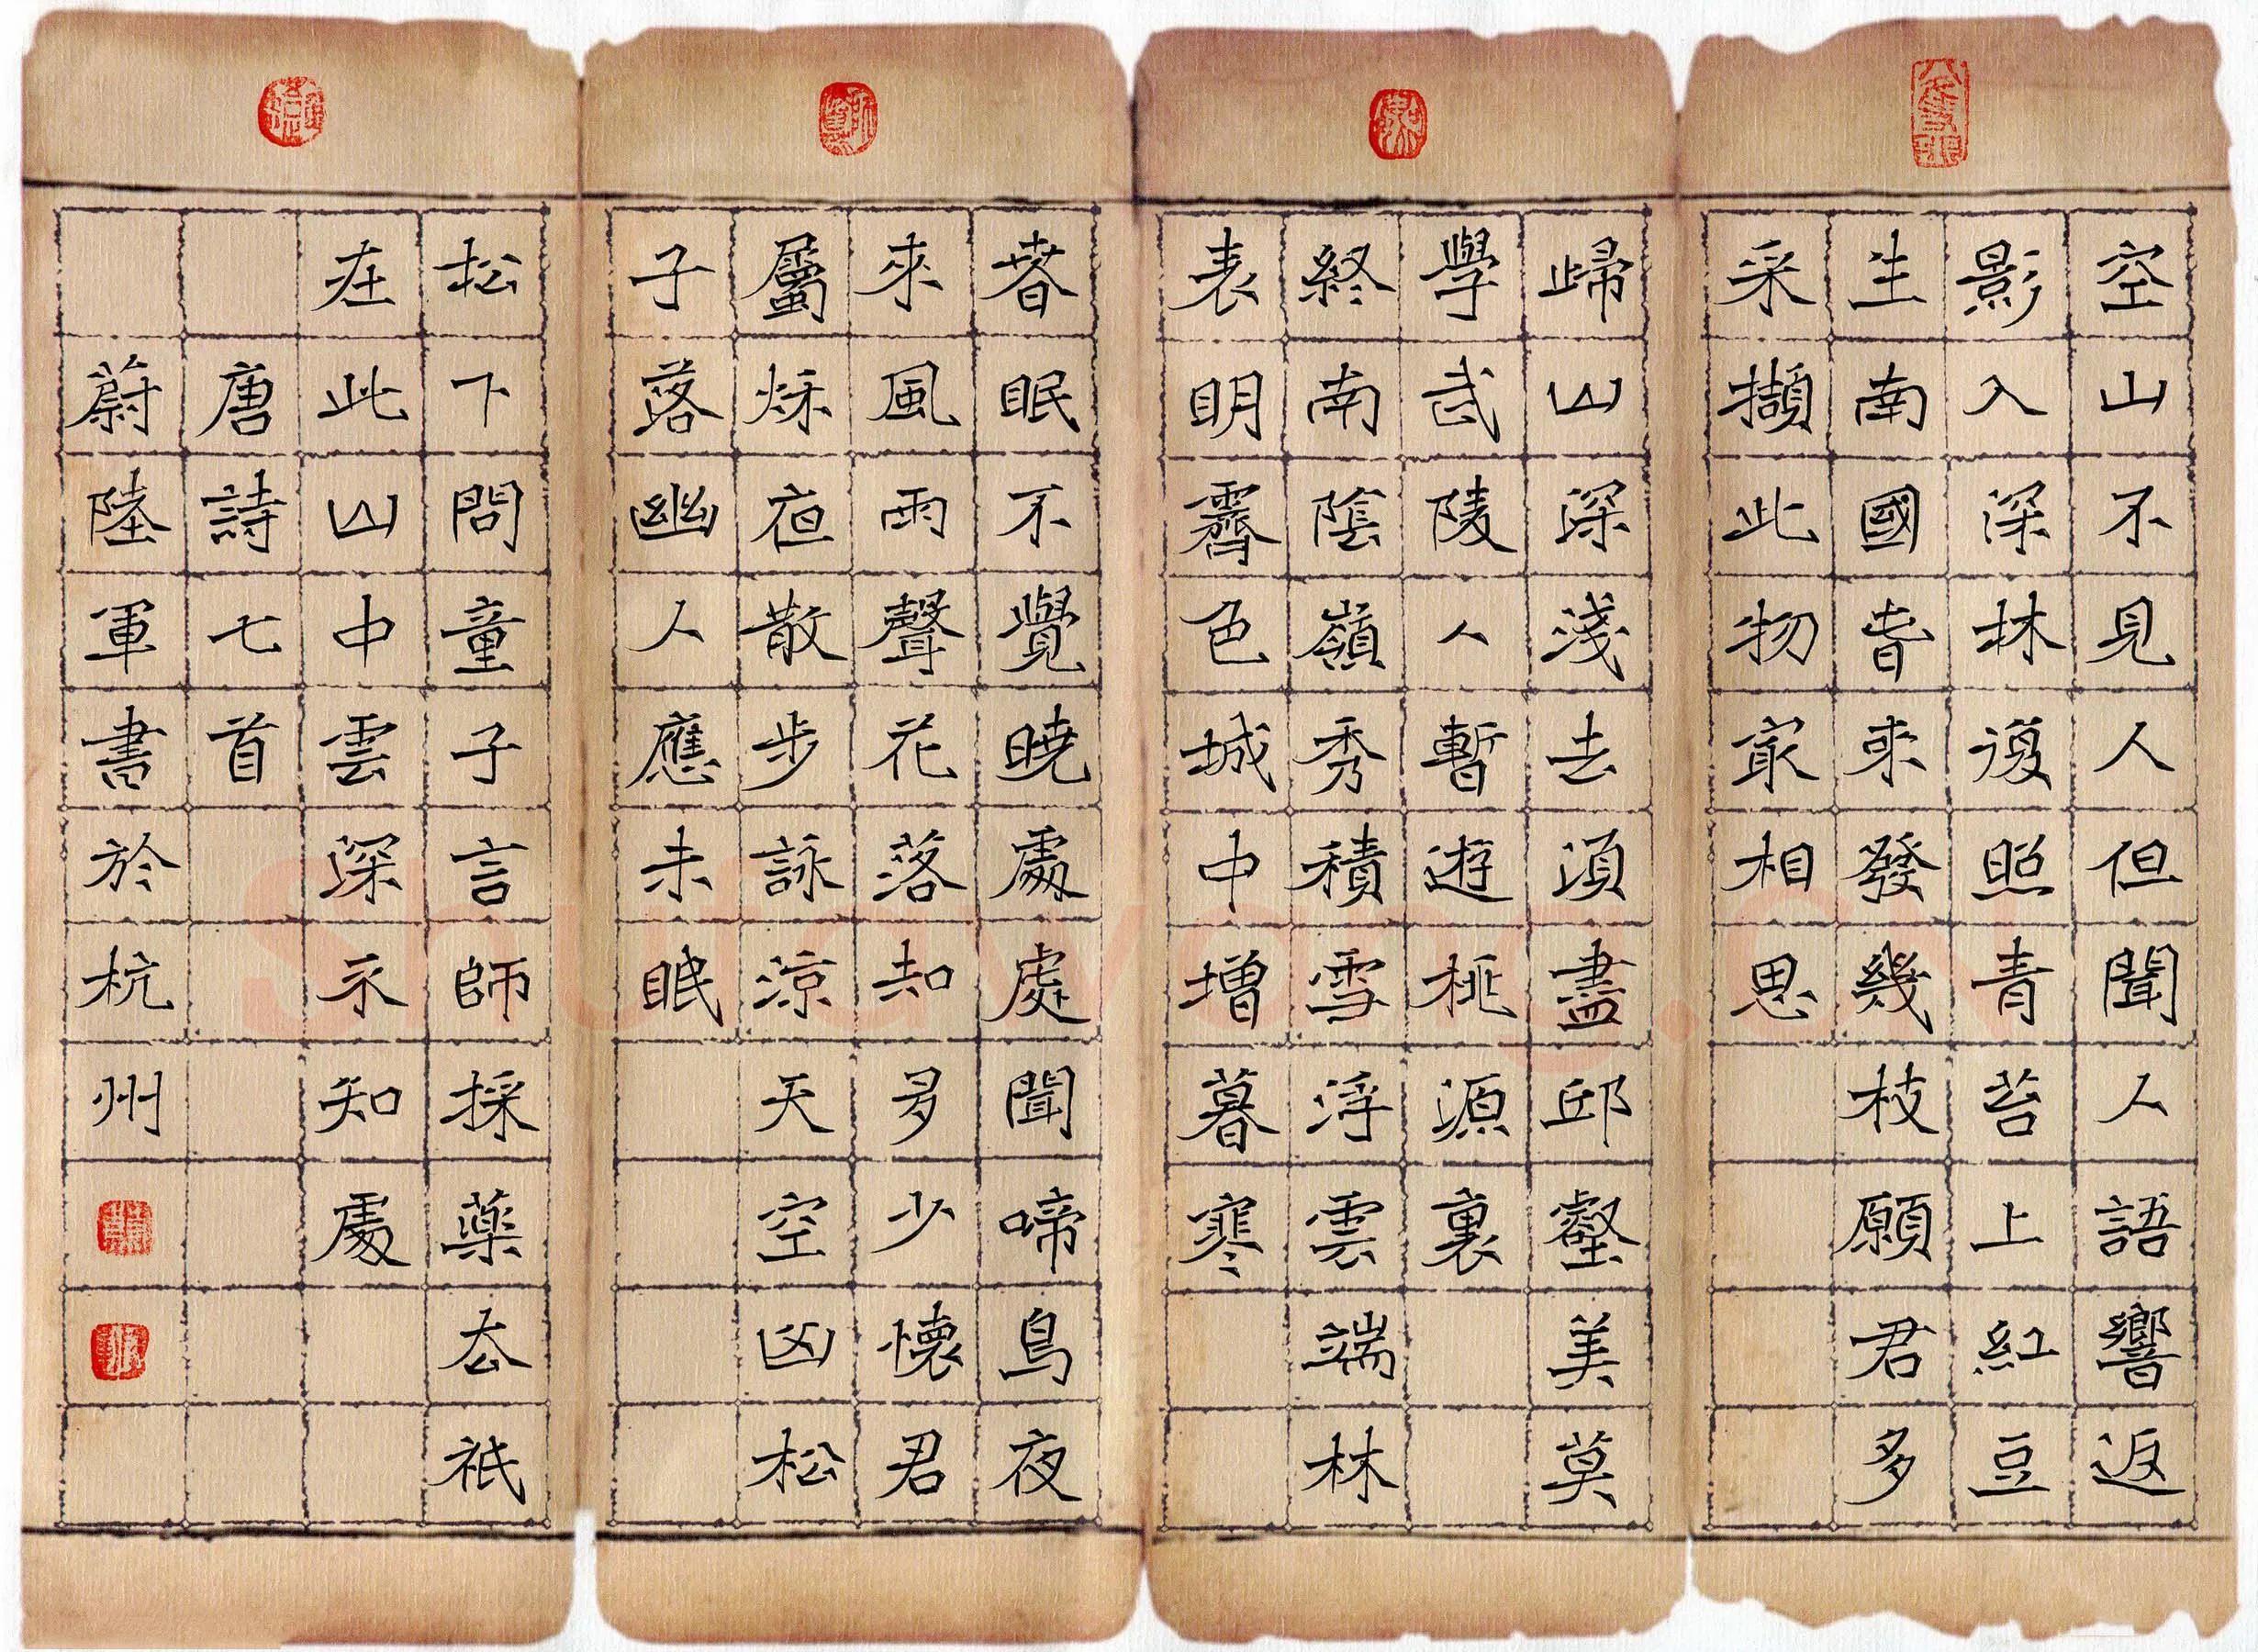 空山不見人但聞人語響返
影入深林復照青苔上紅豆
生南國春來發幾枝願君多
采擷此物最相思
歸山深淺去須盡邱壑美莫
學武陵人暫遊桃源裏
終南陰嶺秀積雪浮雲端林
表明霽色城中增暮寒
春眠不覺曉處處聞啼鳥夜
來風雨聲花落知多少懷君
屬秋夜散步詠涼天空山松
子落幽人應未眠
松下問童子言師採藥去祇
在此山中雲深不知處
唐詩七首
蔚陸軍書於杭州